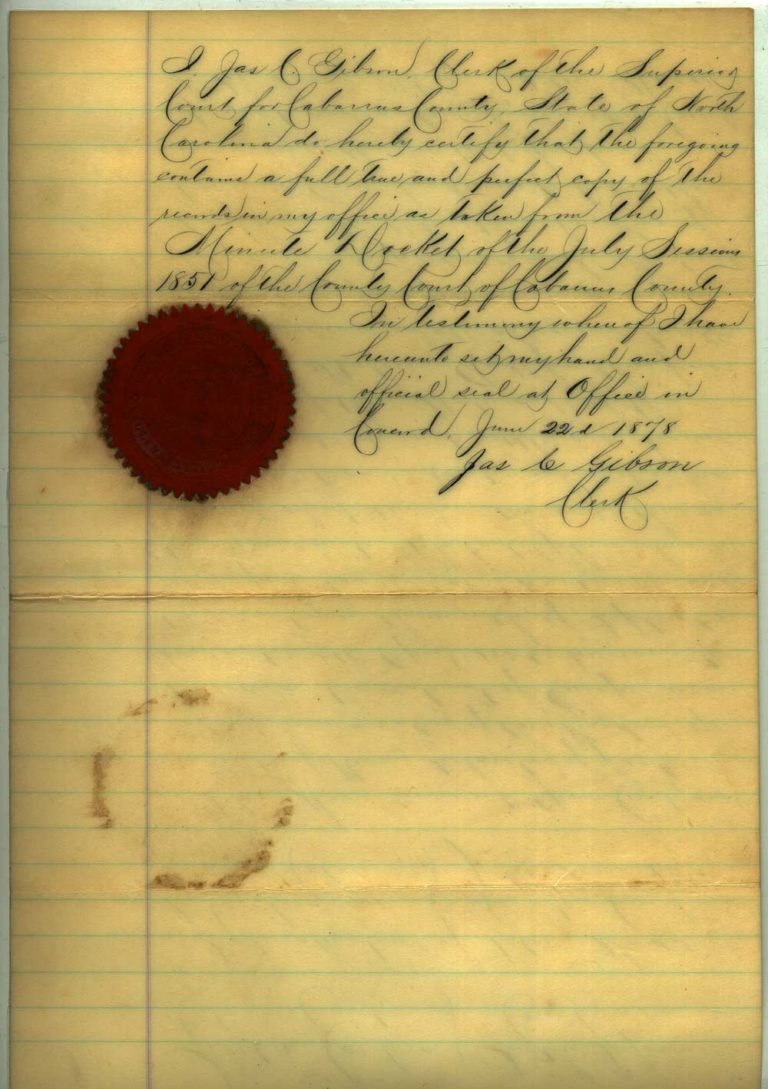 I, Jas C. Gibson, Clerk of the Superior
Court for Cabarrus County, State of North
Carolina do, hereby certify that the foregoing
contains a full true, and perfect copy of the
records in my office as taken from the
Minute Docket of the July Session
1851 of the County Court of Cabarrus County.
In testimony whereof I have
hereunto set my hand and
official seal at Office in
Concord, June 22d 1878
Jas C Gibson
Clerk